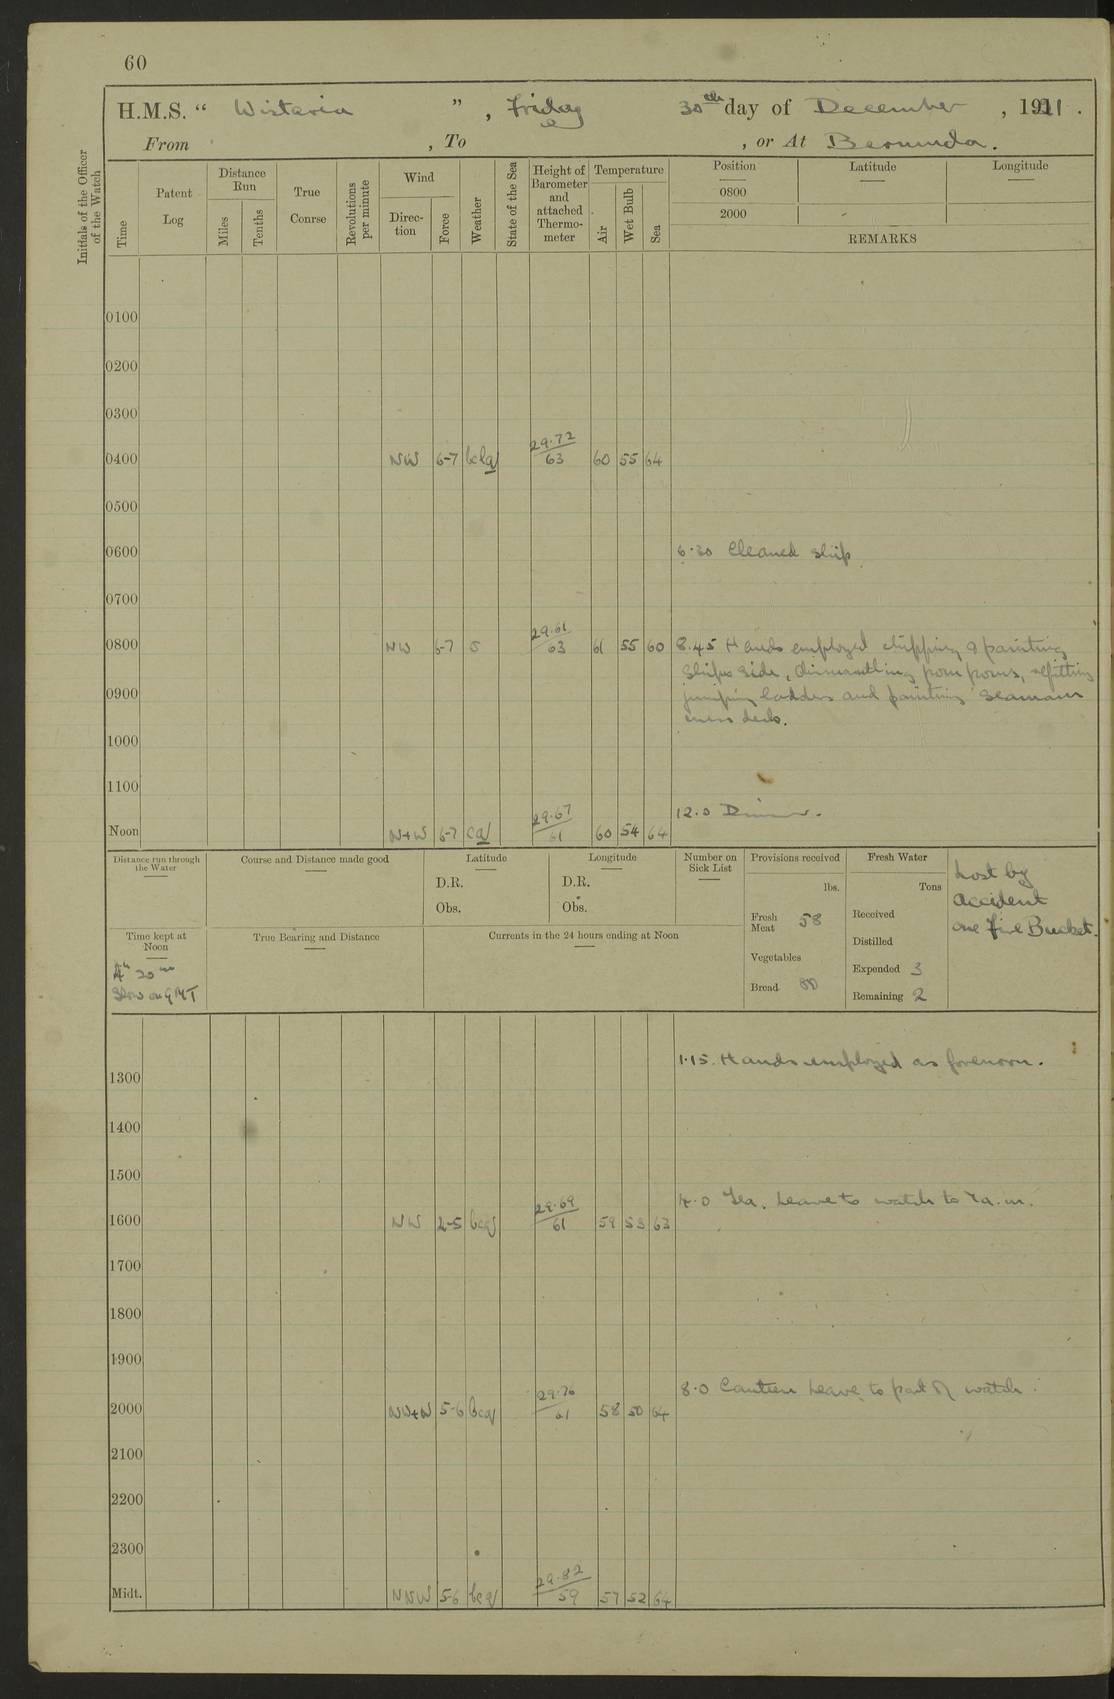 60
H.M.S. “ Wistaria ” , Friday 30th day of December , 1921 .
From , To , or At Bermuda .
Initials of the Officer of the Watch
Time
Patent Log
Distance Run
Miles
Tenths
True Course
Revolutions per minute
Wind
Direc-tion
Force
Weather
State of the Sea
Height of Barometer and attached Thermo-meter
Temperature
Air
Wet Bulb
Sea
Position Latitude Longitude
0800
2000
REMARKS
0100
0200
0300
0400 NW 6-7 29.72/63 60 55 64
0500
0600 6.30 Cleaned ship
0700
0800 NW 6-7 29.61/63 61 55 60 8.45 Hands employed chipping & painting
ships side, dismantling pom poms, refitting
0900 jumping ladders and painting seamans
mess decks.
1000
1100
12.0 Dinner.
Noon 6-7 cq 29.67/61 60 54 64
Distance run through the Water
Course and Distance made good
Latitude
D.R.
Obs.
Longitude
D.R.
Obs.
Number on Sick List
Provisions received
lbs.
Fresh Meat 58
Vegetables
Bread 80
Fresh Water
Tons
Received
Distilled
Expended 3
Remaining 2
Lost by
accident
one Fire Bucket.
Time kept at Noon
4h 20m
Slow on GMT
True Bearing and Distance
Currents in the 24 hours ending at Noon
1.15 Hands employed as forenoon.
1300
1400
1500
4.0 Tea. Leave to watch to 7 a.m.
1600 NW bcq 29.69/61 59 53 63
1700
1800
1900
8.0 Canteen Leave to part of watch.
2000 5-6 bcq 29.76/61 58 50 64
2100
2200
2300
Midt. NNW 5-6 bcq 29.82/59 57 52 64